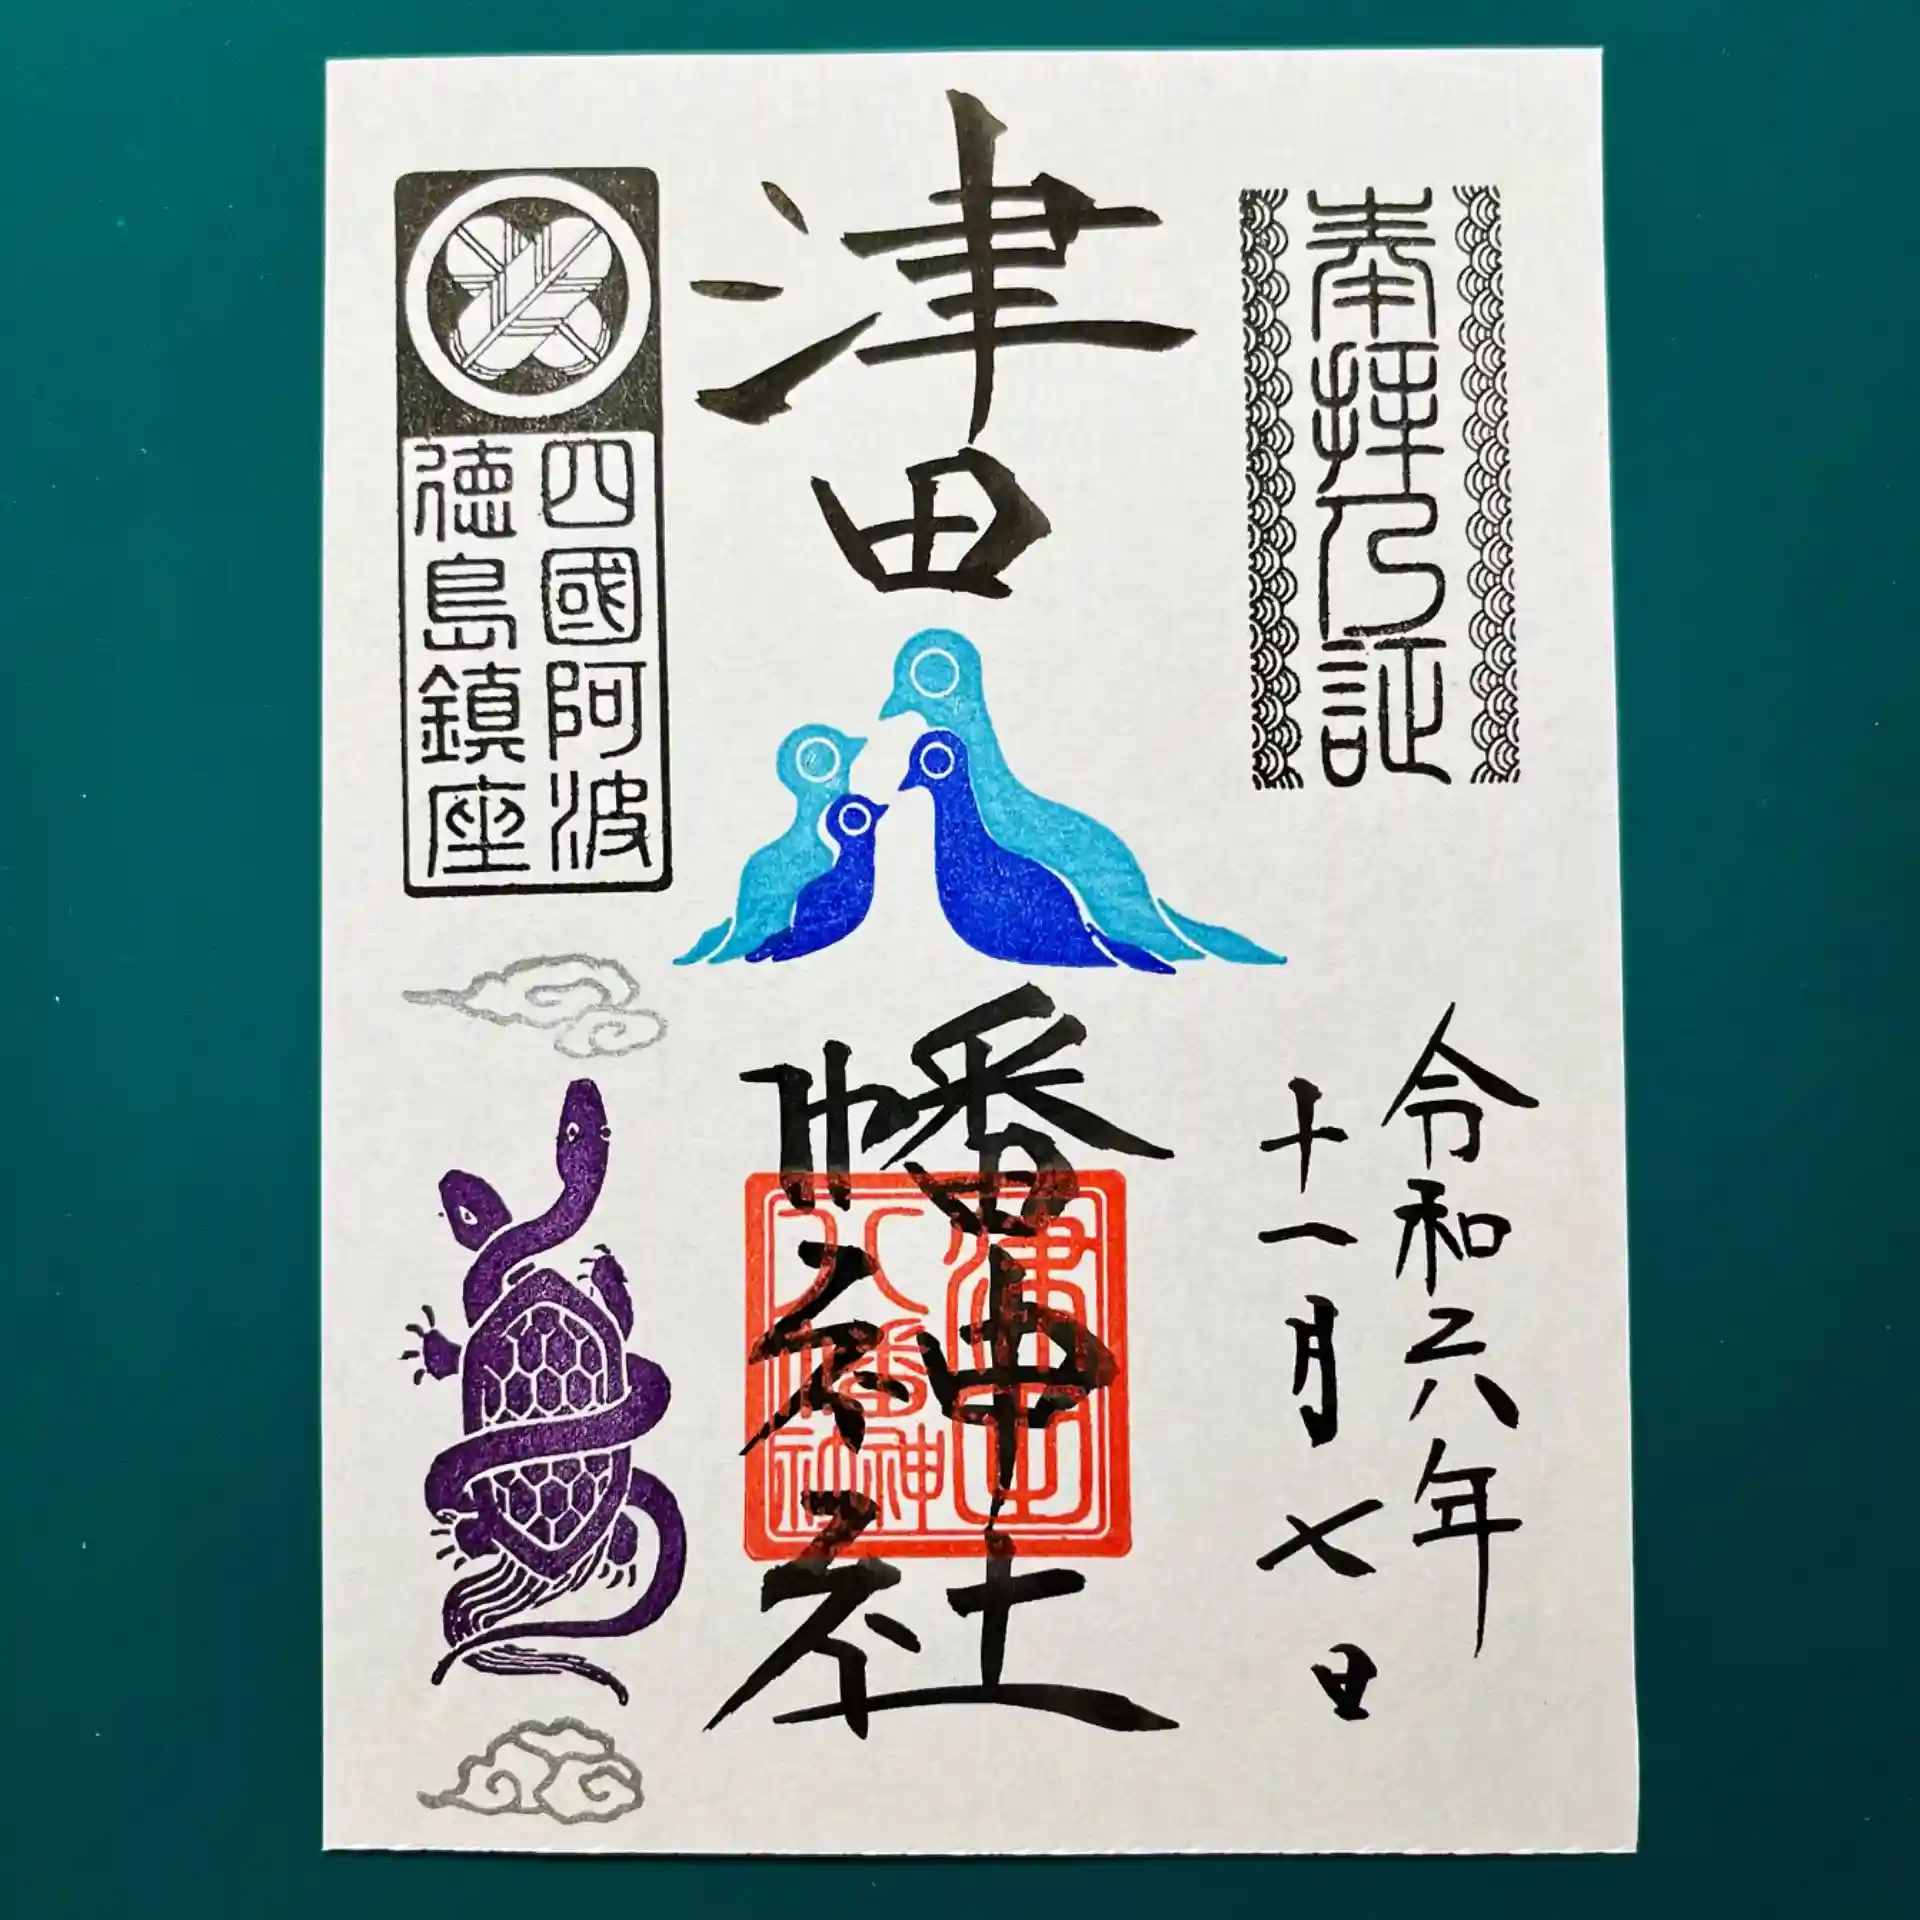 奉拝之証
令和六年
十一月七日
津田
幡神社
津田
八幡神
社
四國阿波
徳島鎮座